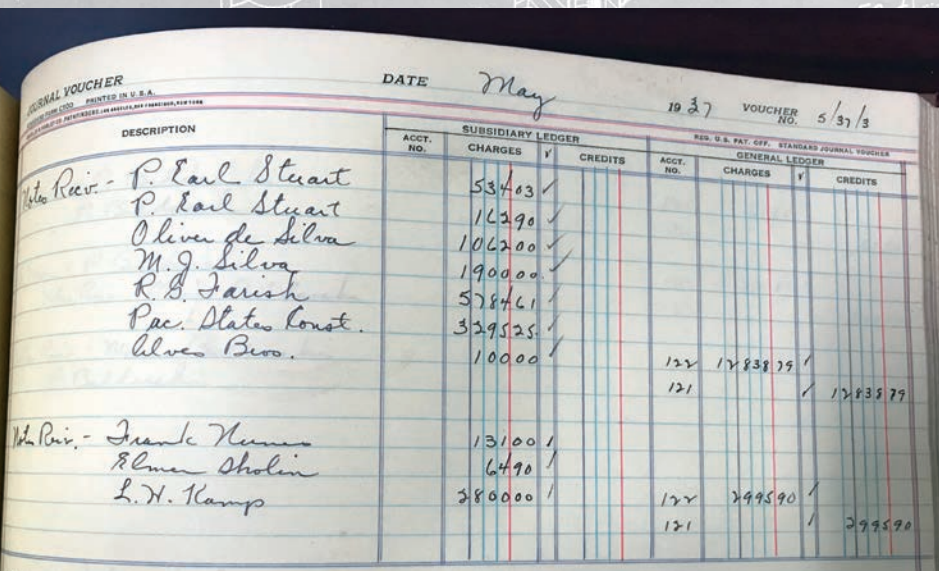 JOURNAL VOUCHER DATE May 1937 VOUCHER NO. 5/37/3
PRINTED IN U.S.A.
REG. U.S. PAT. OFF. STANDARD JOURNAL VOUCHER
DESCRIPTION SUBSIDIARY LEDGER GENERAL LEDGER
ACCT. NO. CHARGES √ CREDITS ACCT. NO. CHARGES √ CREDITS
Notes Reciv. - P. Earl Stuart 534 03 ✓
P. Earl Stuart 162 90 ✓
Oliver de Silva 1062 00 ✓
M. J. Silva 1900 00 ✓
R. G. Farish 5784 61 ✓
Pac. States Const. 3295 25 ✓
Alves Bros. 100 00 ✓ 122 12838 79 ✓
121 ✓ 12838 79
Notes Reciv. - Frank Nunes 131 00 ✓
Elmer Sholin 64 90 ✓
L. H. Kamp 2800 00 ✓ 122 2995 90 ✓
121 ✓ 2995 90